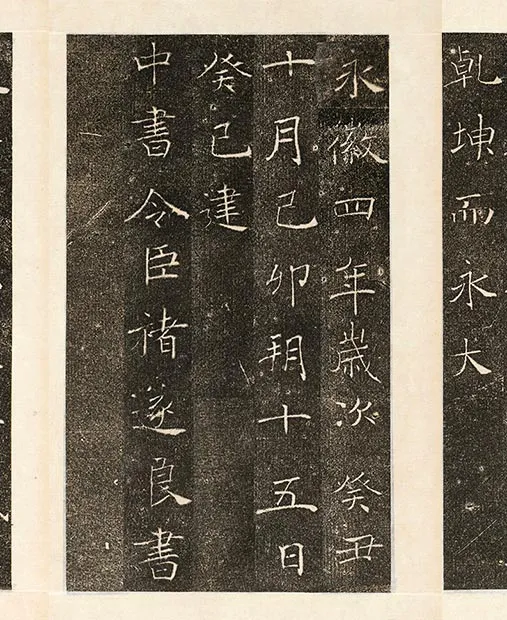 乹坤而永大
永徽四年歲次癸丑
十月己卯朔十五日
癸巳建
中書令臣褚遂良書